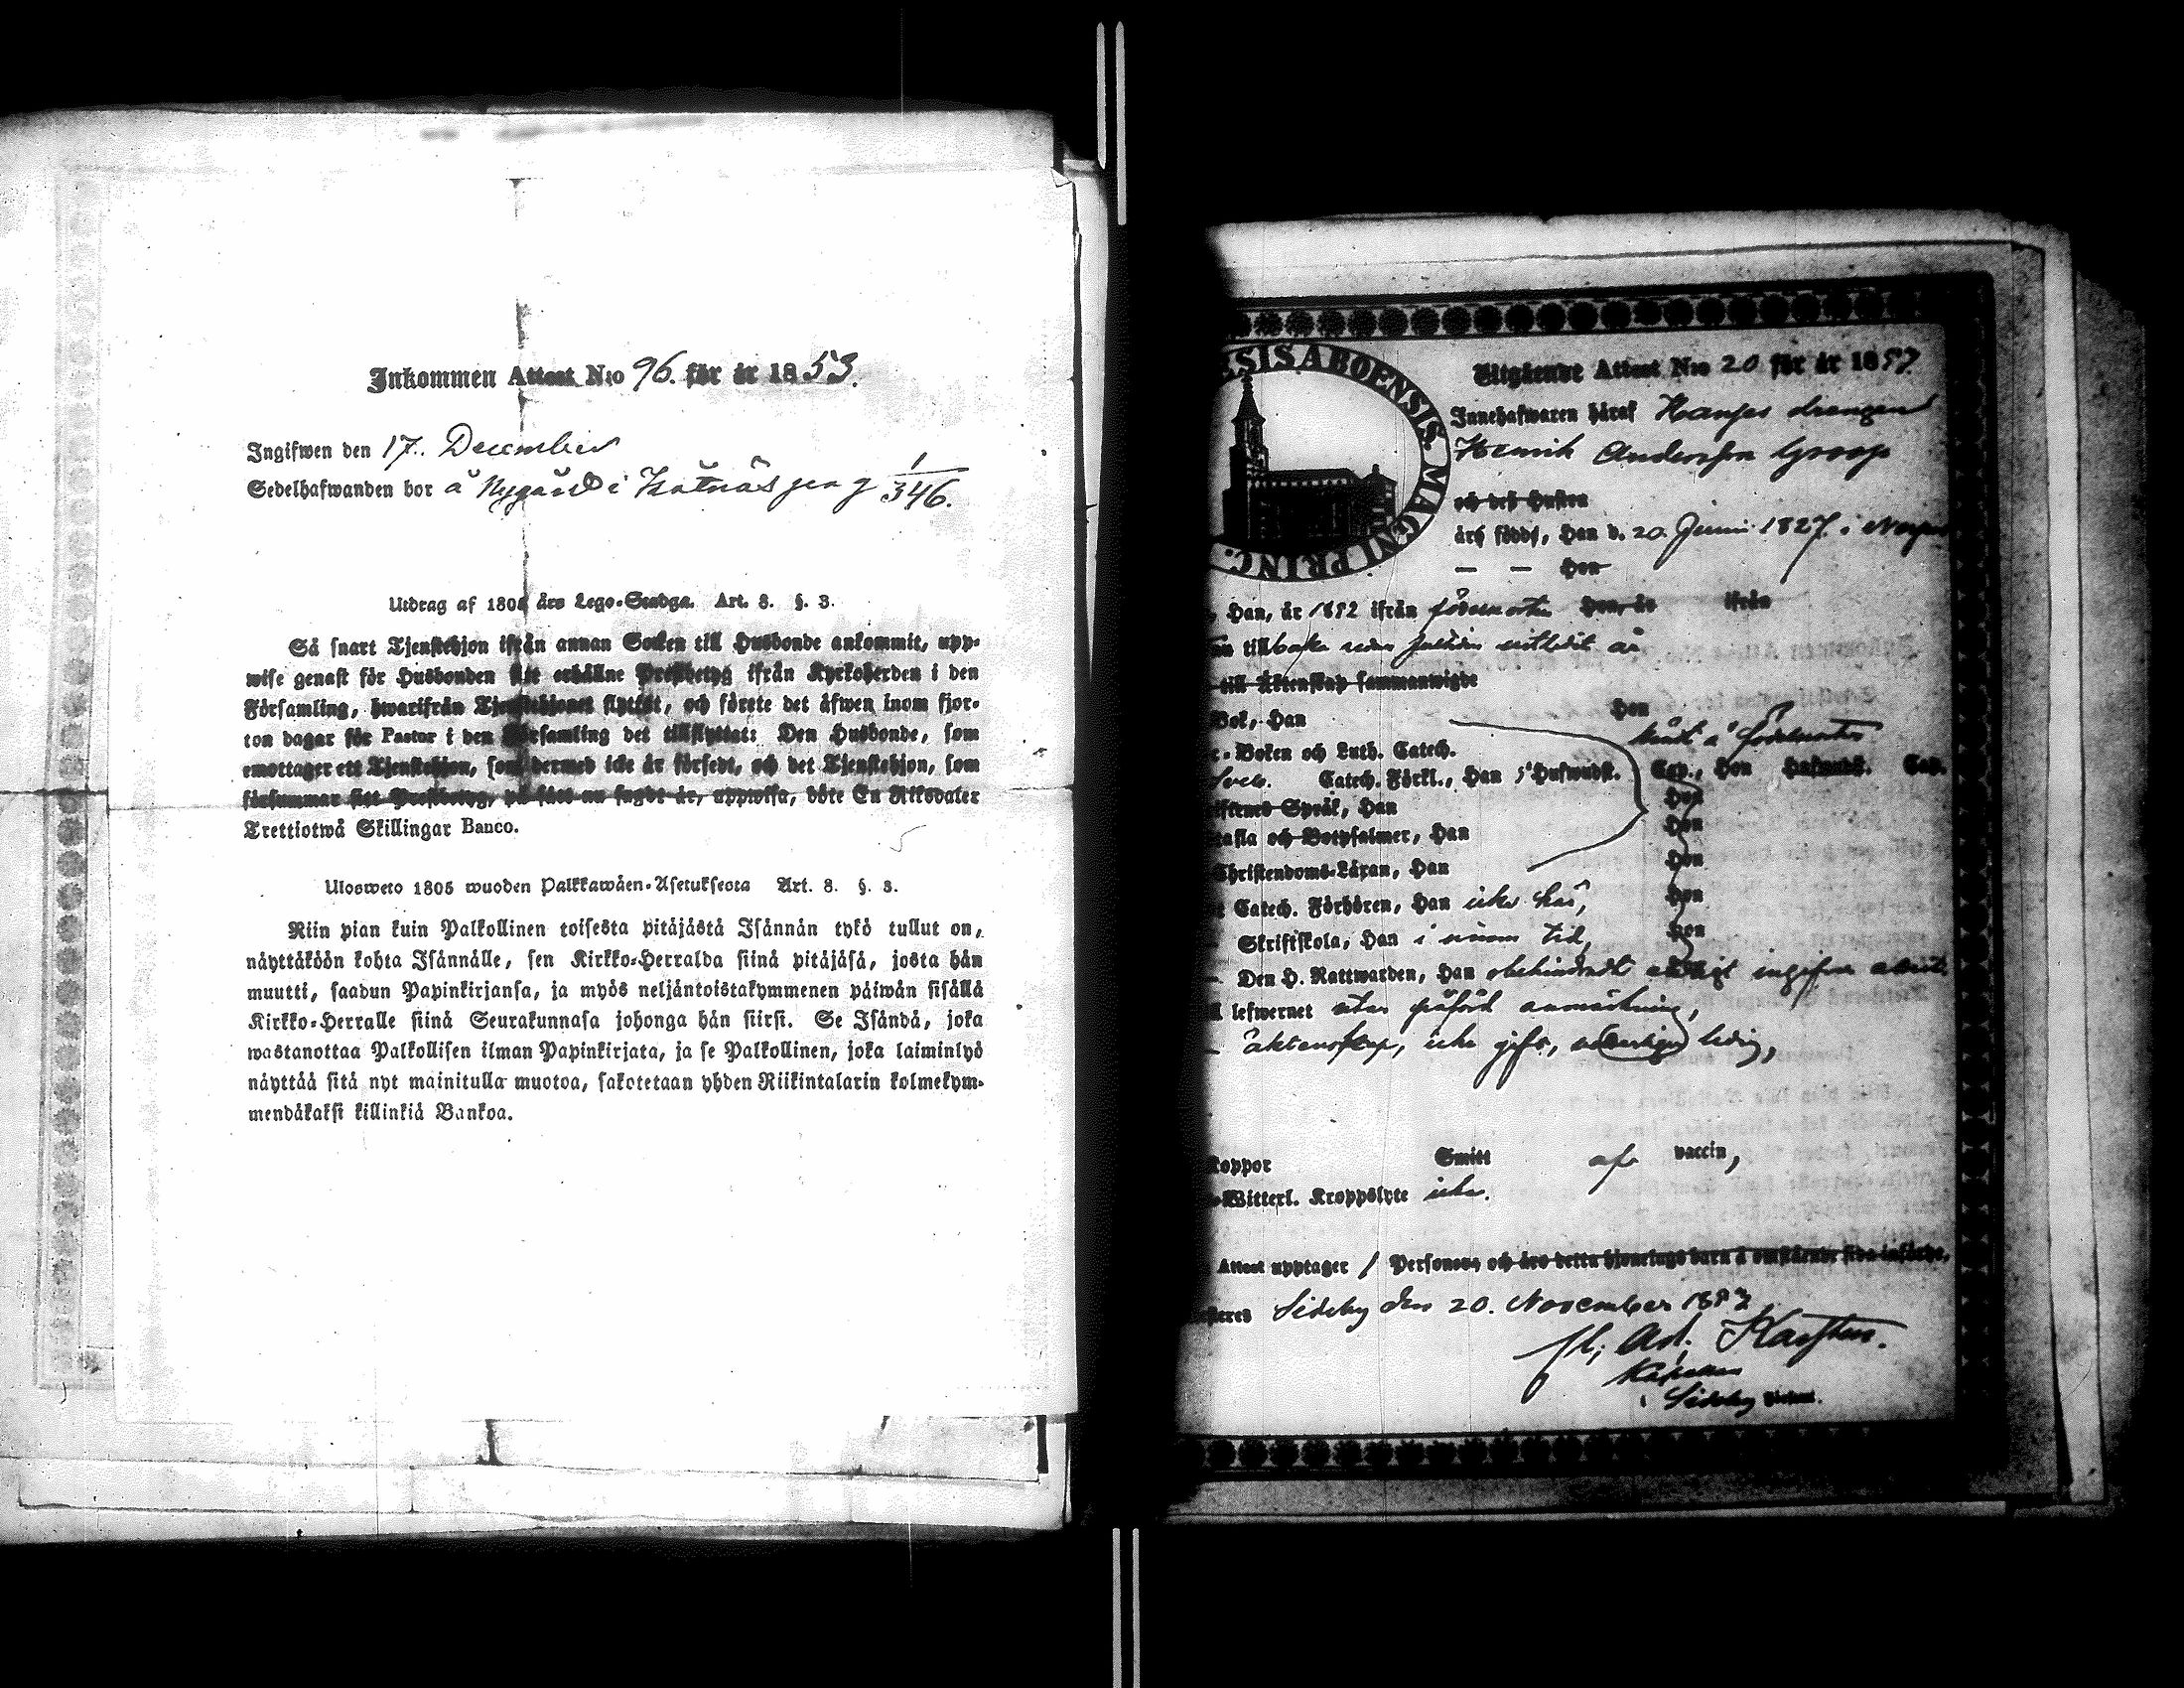 Inkommen Attest N:o 96. för år 1853.
Ingifwen den 17. December
Sedelhafwanden bor å Nygård i Kåtnäs pag 1/346.
Utdrag af 1805 års Lego-Stadga. Art. 8. §. 3.
Så snart Tjenstehjon ifrån annan Socken till Husbonde ankommit, upp-
wise genast för Husbonden sitt erhållne Prestbetyg ifrån Kyrkoherden i den
Församling, hwarifrån Tjenstehjonet flyttat, och förete det äfwen inom fjor-
ton dagar för Pastor i den Församling det tillflyttat: Den Husbonde, som
emottager ett Tjenstehjon, som dermed icke är försedt, och det Tjenstehjon, som
försummar sitt Prestbetyg, på sätt nu sagdt är, uppwisa, böte En Riksdaler
Trettiotwå Skillingar Banco.
Ulosweto 1805 wuoden Palkkawäen-Asetuksesta Art. 8. §. 3.
Niin pian kuin Palkollinen toisesta pitäjästä Isännän tykö tullut on,
näyttäköön kohta Isännälle, sen Kirkko-Herralda siinä pitäjäsä, josta hän
muutti, saadun Papinkirjansa, ja myös neljäntoistakymmenen päiwän sisällä
Kirkko-Herralle siinä Seurakunnasa johonga hän siirsi. Se Isändä, joka
wastanottaa Palkollisen ilman Papinkirjata, ja se Palkollinen, joka laiminlyö
näyttää sitä nyt mainitulla muotoa, sakotetaan yhden Riikintalarin kolmekym-
mendäkaksi killinkiä Bankoa.
SIS ABOENSIS. MAGNI PRINC.
Utgående Attest N:o 20 för år 1853
Innehafwaren häraf drengen
Henrik Andersson Groop
och deß Hustru
äro födde, Han d. 20. Juni 1827. i
— — Hon
Han, år 1852 ifrån födelseorten Hon, år ifrån
till Äktenskap sammanwigde
Bok, Han Hon
-Boken och Luth. Catech.
Catech. Förkl., Han 5 Hufwudst. Cap., Hon Hufwudst. Cap.
Språk, Han Hon
tafla och Botpsalmer, Han Hon
Christendoms-Läran, Han Hon
Catech. Förhören, Han icke här, Hon
Skriftskola, Han i sinom tid, Hon
Den H. Nattwarden, Han obehindradt
lefwernet utan påförd anmärkning,
äktenskap, icke gift, ledig,
Koppor Smitt af vaccin,
Witterl. Kroppslyte icke.
Attest upptager 1 Personer, och äro detta hjonelags barn å omstående sida införde,
Sideby den 20. November 1853
Ad. Karsten.
Kapellan
i Sideby